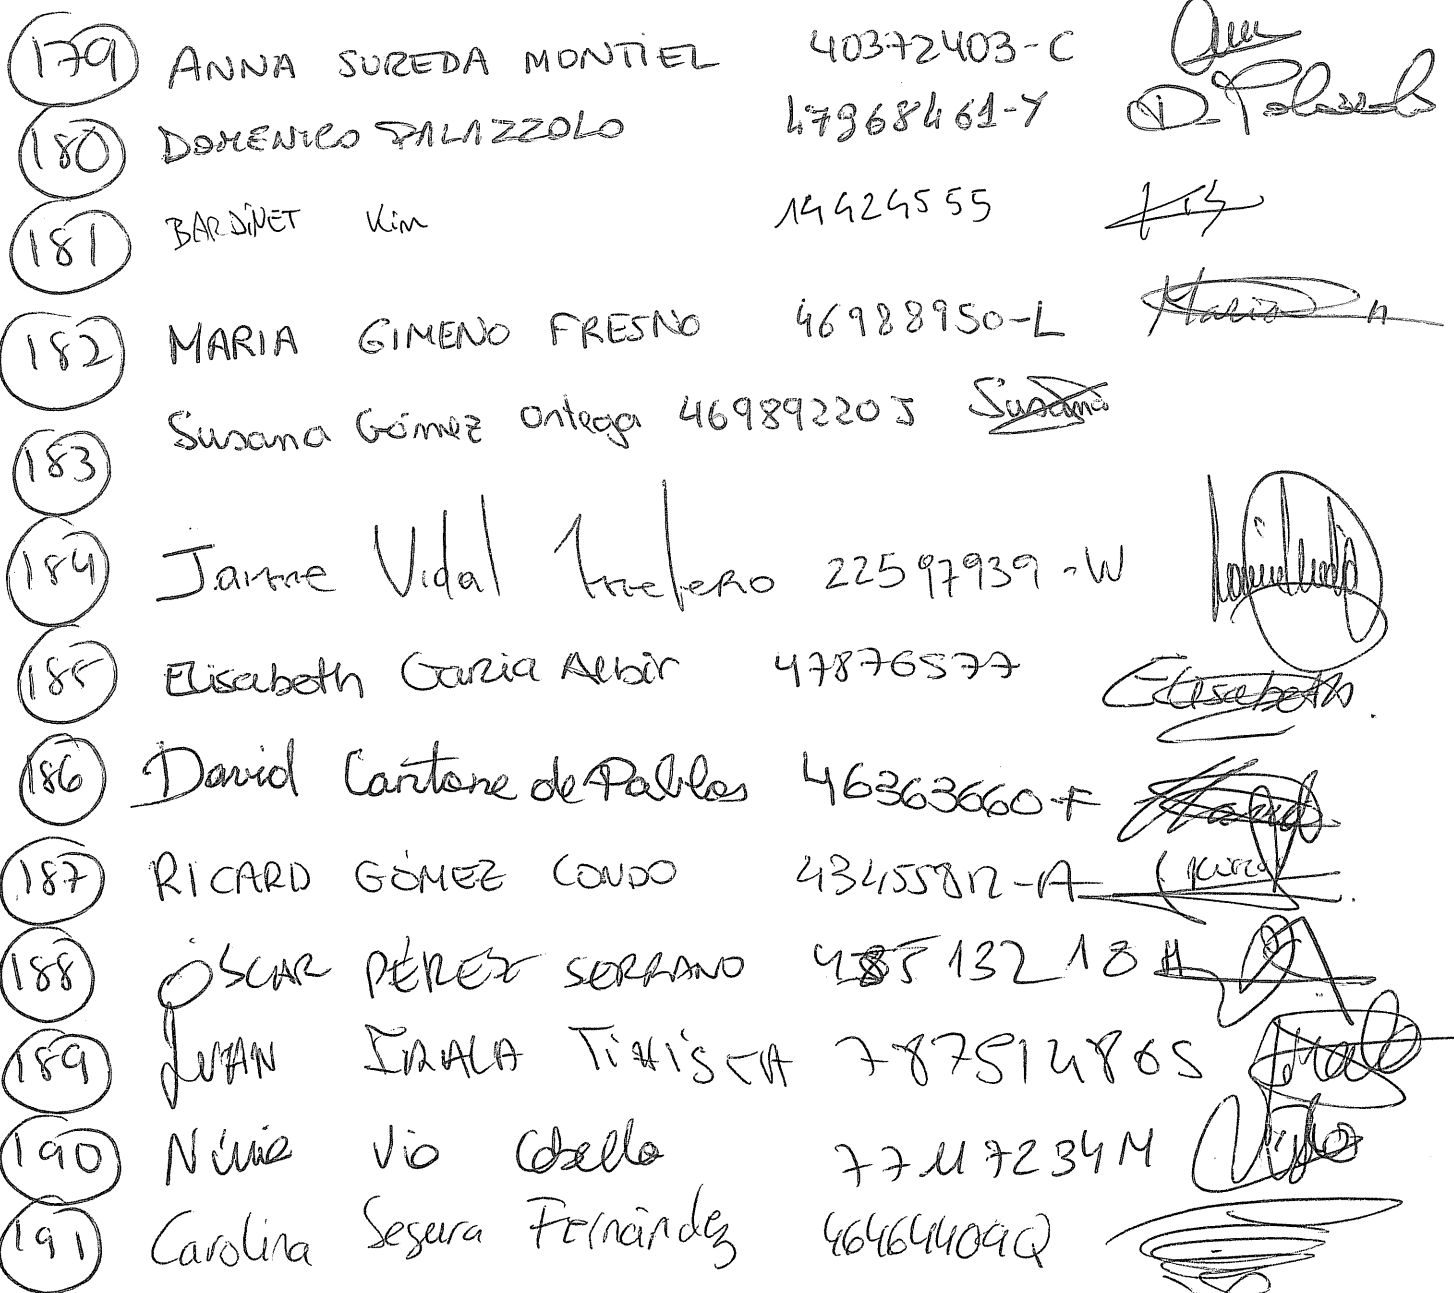 179 ANNA SUREDA MONTIEL 40372403-C
180 DOMENICO PALAZZOLO 47968461-Y D. Palazzolo
181 BARDINET Kim 14424555
182 MARIA GIMENO FRESNO 46988950-L Maria
183 Susana Gómez Ortega 46989220J Susana
184 Jaime Vidal 22597939-W
185 Elisabeth Garzia Albir 47876577 Elisabeth
186 David Cantone de Pablos 46363660-F
187 RICARD GÓMEZ CONDO
188 ÓSCAR PÉREZ SERRANO 48513218H
189 JUAN IRALA 78751486S
190 Núria Vio 77117234M
191 Carolina Segura Fernández 46464409Q